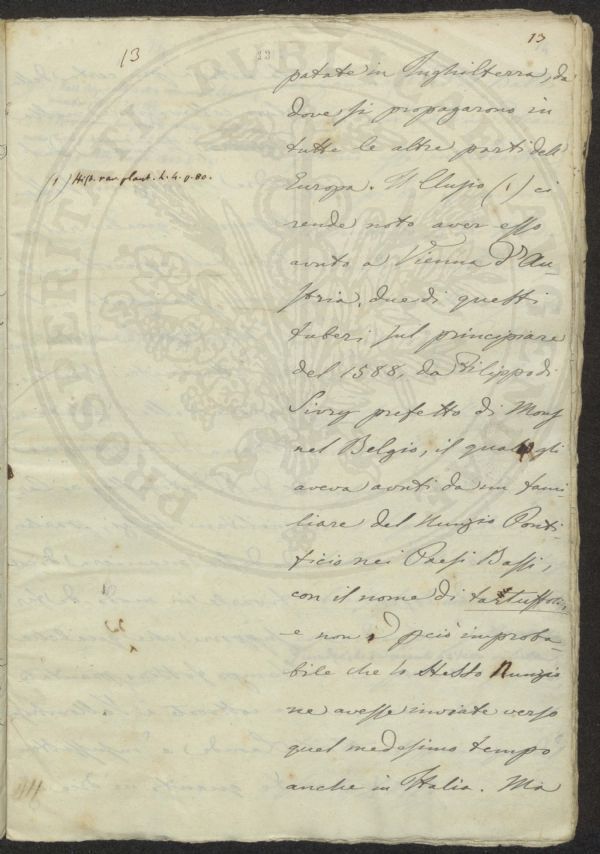 13
13
13
patate in Inghilterra, da
dove si propagarono in
tutte le altre parti dell'
1) Hist. rar. plant. L. 4. p. 80.
Europa. Il Clusio (1) ci
rende noto aver esso
avuto a Vienna d'Au-
stria, due di questi
tuberi sul principiare
del 1588, da Filippo di
Sivry prefetto di Mons
nel Belgio, il quale gli
aveva avuti da un fami
liare del Nunzio Ponti-
ficio nei Paesi Bassi,
con il nome di tartuffoli,
e non è pciò improba-
bile che lo stesso Nunzio
ne avesse inviate verso
quel medesimo tempo
anche in Italia. Ma
44
PROSPERITATI PUBLICAE